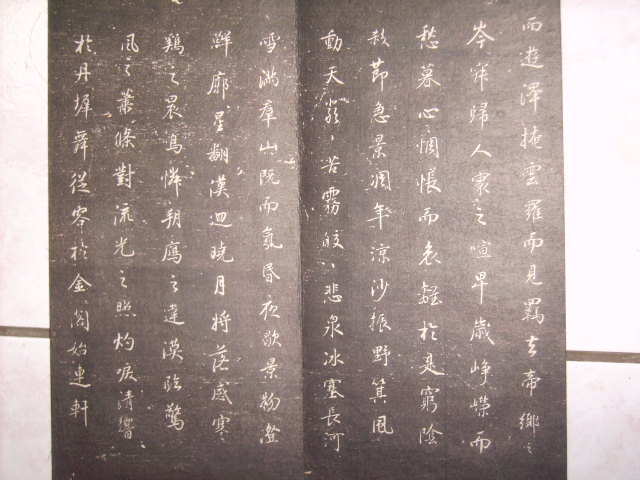 而遊澤掩雲羅而見羈去帝鄉之
岑寂歸人寰之喧卑歲崢嶸而
愁暮心惆悵而哀離於是窮陰
殺節急景凋年涼沙振野箕風
動天嚴〻苦霧皎〻悲泉冰塞長河
雪滿羣山既而氛昏夜歇景物澄
鮮廓星翻漢迴曉月將落感寒
鷄之晨鳥憐朔鴈之違漠臨驚
風之蕭條對流光之照灼唳清響
於丹墀舞從容於金閣始連軒